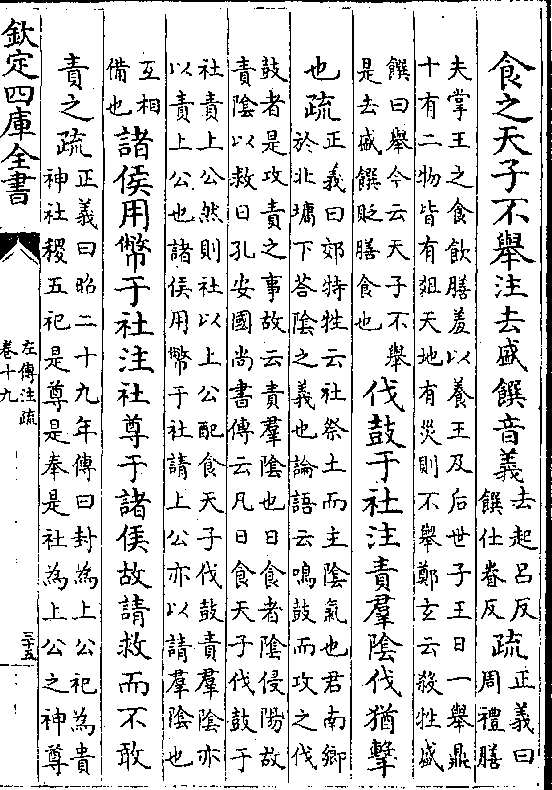 食之天子不舉注去盛饌音義去起呂反饌仕眷反疏正義曰周禮膳
夫掌王之食飲膳羞以養王及后世子王日一舉鼎
十有二物皆有俎天地有災則不舉鄭玄云殺牲盛
饌曰舉今云天子不舉
是去盛饌貶膳食也
伐鼓于社注責羣陰伐猶擊
也疏正義曰郊特牲云社祭土而主陰氣也君南鄉
於北墉下荅陰之義也論語云鳴鼓而攻之伐
鼓者是攻責之事故云責羣陰也日食者陰侵陽故
責陰以救日孔安國尚書傳云凡日食天子伐鼓于
社責上公然則社以上公配食天子伐鼓責羣陰亦
以責上公也諸侯用幣于社請上公亦以請羣陰也
互相
備也
諸侯用幣于社注社尊于諸侯故請救而不敢
責之疏正義曰昭二十九年傳曰封為上公祀為貴
神社稷五祀是尊是奉是社為上公之神尊
欽定四庫全書
左傳注疏
卷十九
三十五